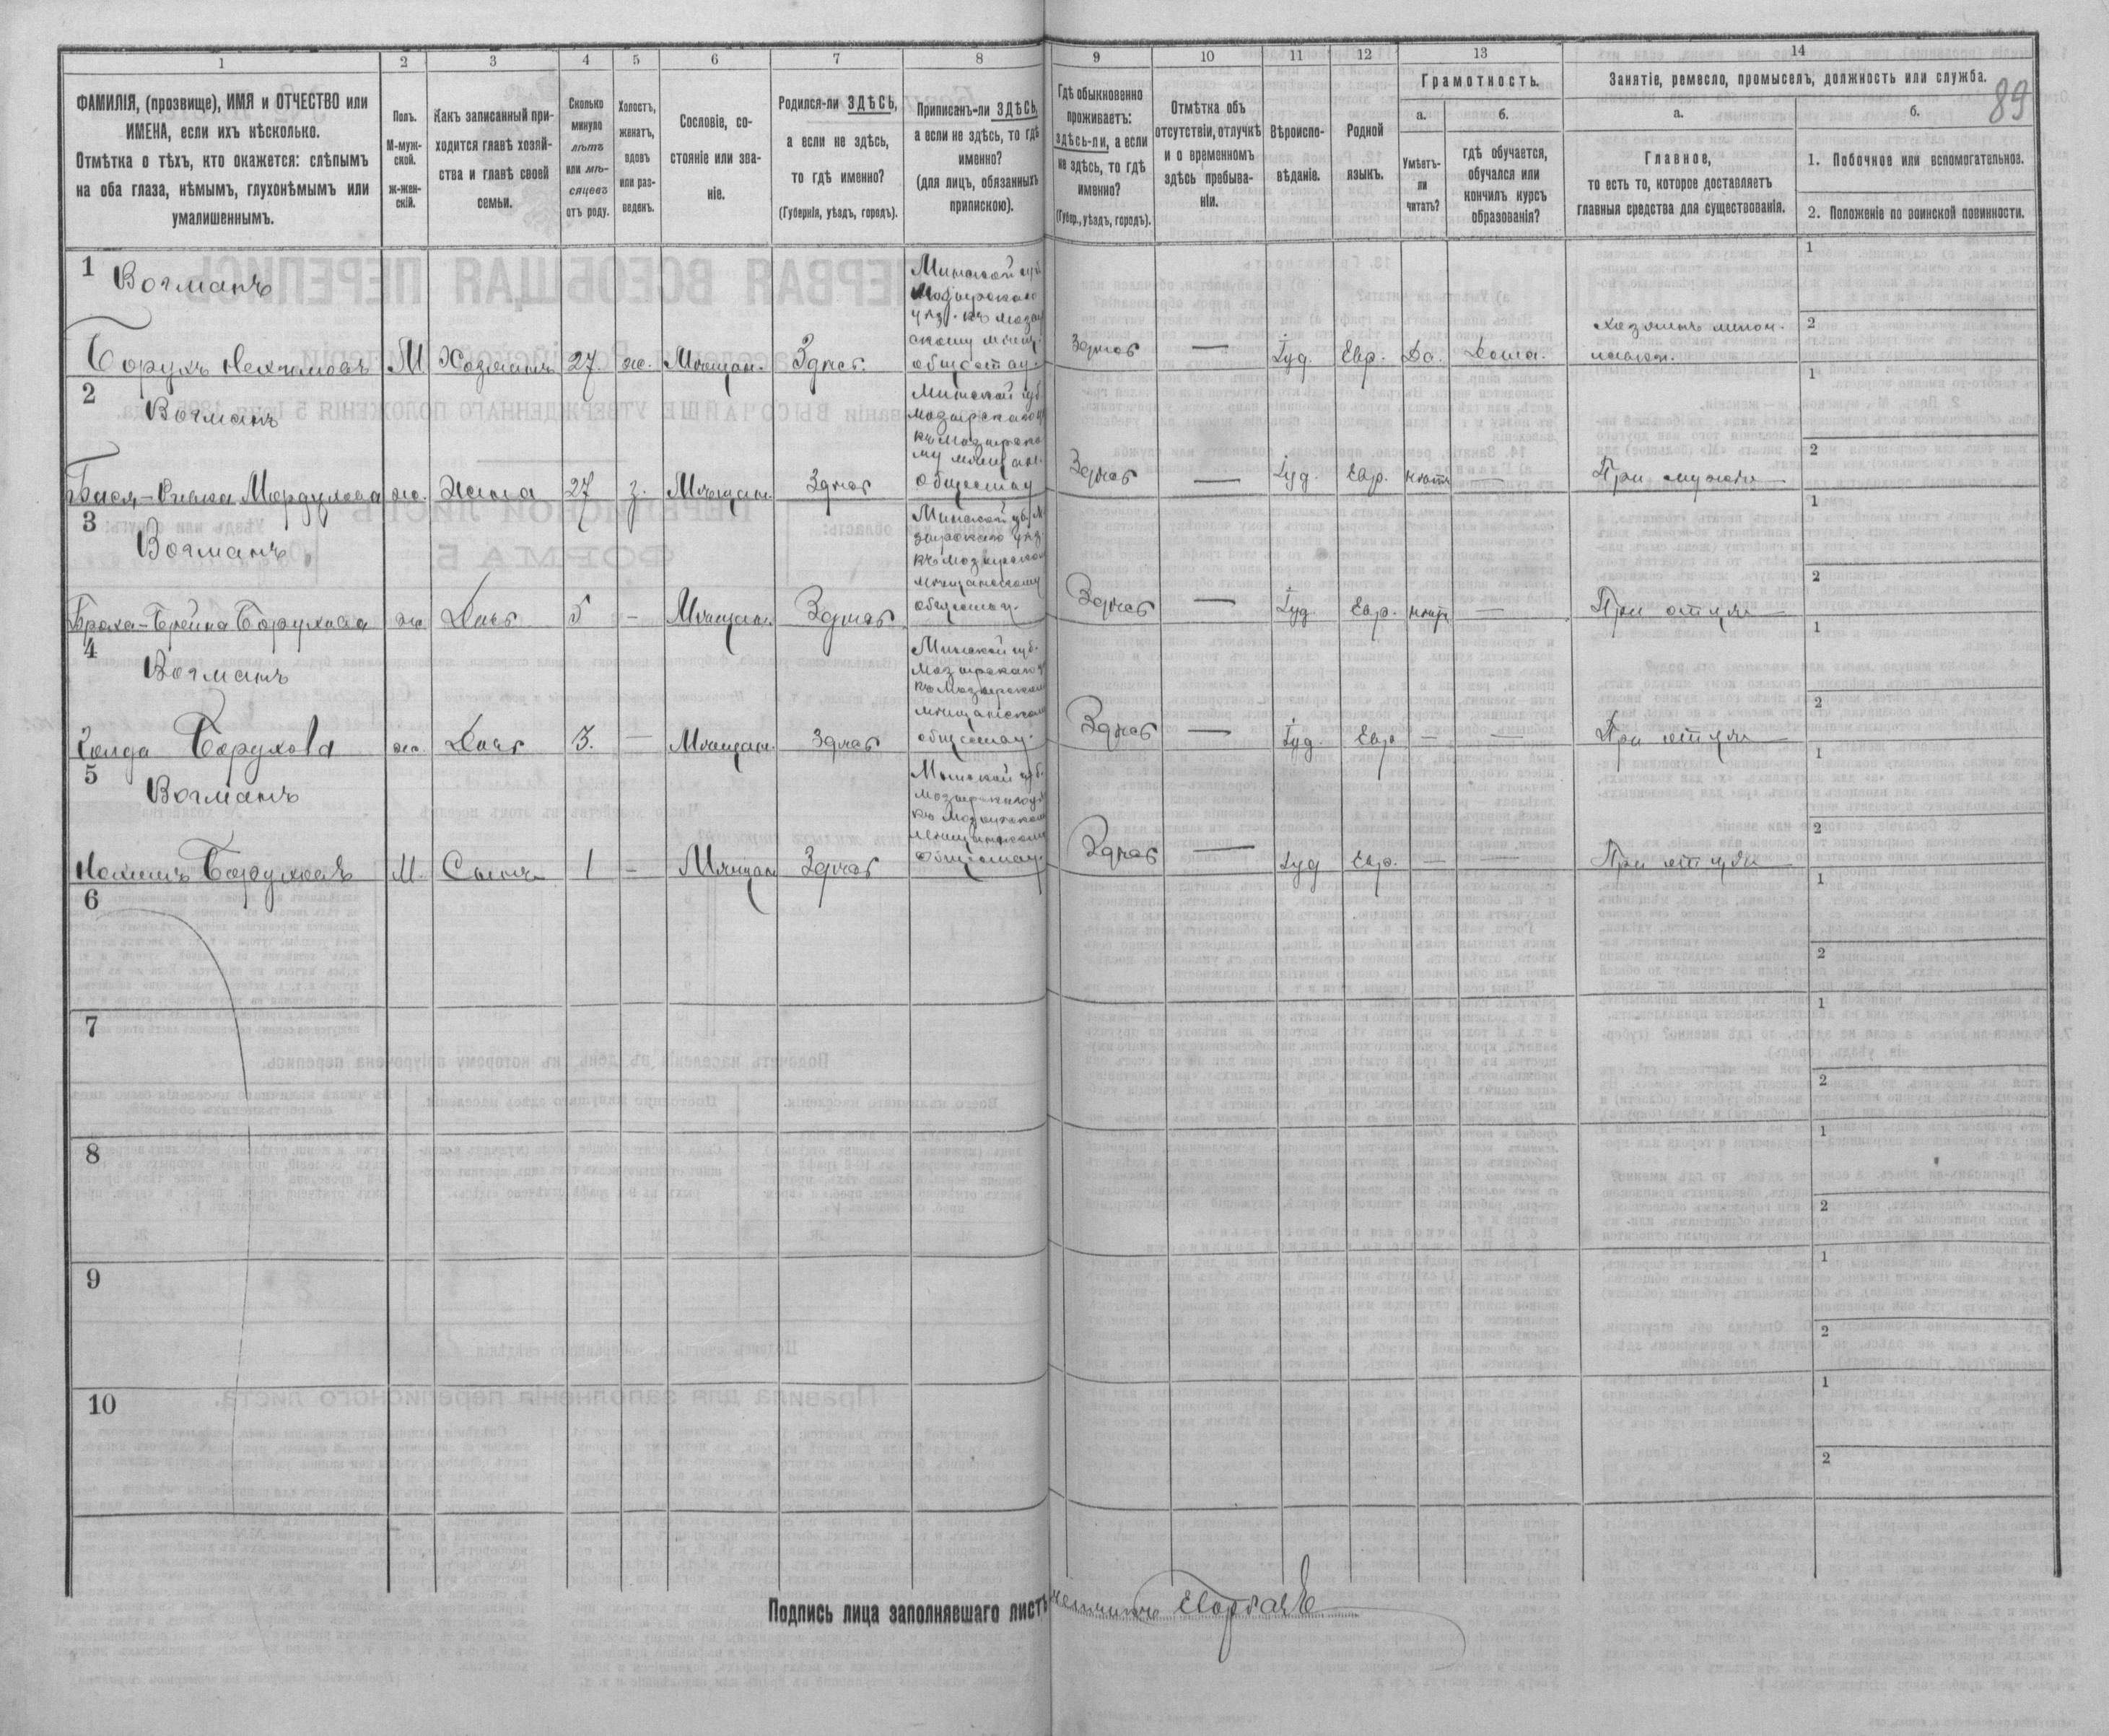 89
1 2 3 4 5 6 7 8 9 10 11 12 13 14
ФАМИЛІЯ, (прозвище), ИМЯ и ОТЧЕСТВО или
ИМЕНА, если ихъ нѣсколько.
Отмѣтка о тѣхъ, кто окажется: слѣпымъ
на оба глаза, нѣмымъ, глухонѣмымъ или
умалишеннымъ.
Полъ.
М-муж-
ской.
ж-жен-
скій.
Какъ записанный при-
ходится главѣ хозяй-
ства и главѣ своей
семьи.
Сколько
минуло
лѣтъ
или мѣ-
сяцевъ
отъ роду.
Холостъ,
женатъ,
вдовъ
или раз-
веденъ.
Сословіе, со-
стояніе или зва-
ніе.
Родился-ли ЗДѢСЬ,
а если не здѣсь,
то гдѣ именно?
(Губернія, уѣздъ, городъ).
Приписанъ-ли ЗДѢСЬ,
а если не здѣсь, то гдѣ
именно?
(для лицъ, обязанныхъ
припискою).
Гдѣ обыкновенно
проживаетъ:
здѣсь-ли, а если
не здѣсь, то гдѣ
именно?
(Губер., уѣздъ, городъ).
Отмѣтка объ
отсутствіи, отлучкѣ
и о временномъ
здѣсь пребыва-
ніи.
Вѣроиспо-
вѣданіе.
Родной
языкъ.
Грамотность.
а.
Умѣетъ-
ли
читать?
б.
гдѣ обучается,
обучался или
кончилъ курсъ
образованія?
Занятіе, ремесло, промыселъ, должность или служба.
а.
Главное,
то есть то, которое доставляетъ
главныя средства для существованія.
б.
1. Побочное или вспомогательное.
2. Положеніе по воинской повинности.
1 Вогманъ
Минской губ.
Мозырскаго
уѣз. къ Мозыр
скому мѣщ.
обществу.
Борухъ Нехимовъ М Хозяинъ 27. ж. Мѣщан. Здѣсь. Здѣсь — Іуд. Евр. Да. Дома.
1
2
2 Вогманъ
Минской губ
Мозырскаго у
къ Мозырско
му мѣщан.
обществу
Мордухова ж. Жена 27 з. Мѣщан. Здѣсь Здѣсь — Іуд. Евр. нѣтъ — При мужѣ
1
2
3 Вогманъ
Минской губ. М
зырскаго уѣз
къ Мозырском
мѣщанскому
обществу.
Браха-Брейна Борухова ж Дочь 5 — Мѣщан. Здѣсь Здѣсь — Іуд. Евр. нѣтъ — При отцѣ
1
2
4 Вогманъ
Минской губ.
Мозырскаго у
къ Мозырском
мѣщанском
обществу.
Голда Борухова ж. Дочь 3. — Мѣщан. Здѣсь Здѣсь — Іуд. Евр — — При отцѣ
1
2
5 Вогманъ
Минской губ.
Мозырскаго у
къ Мозырском
мѣщанском
обществу.
Нохимъ Боруховъ М. Сынъ 1 — Мѣщан Здѣсь Здѣсь — Іуд Евр. — — При отцѣ
1
2
6
1
2
7
1
2
8
1
2
9
1
2
10
1
2
Подпись лица заполнявшаго листъ